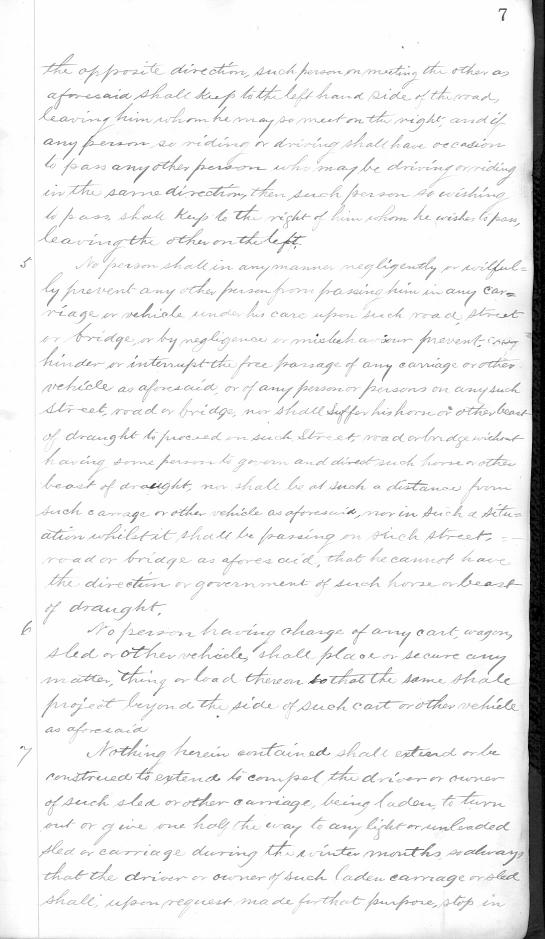 7
the opposite direction, such person on meeting the other as
aforesaid, shall keep to the left hand side of the road,
leaving him whom he may so meet on the right, and if
any person, so riding or driving shall have occasion
to pass any other person who may be driving or riding
in the same direction, then such person so wishing
to pass, shall keep to the right of him whom he wishes to pass,
leaving the other on the left.
5 No person shall in any manner negligently or wilful=
ly prevent any other person from passing him in any car=
riage or vehicle under his care upon such road, street
or bridge, or by negligence or misbehaviour prevent,
hinder or interrupt the free passage of any carriage or other
vehicle as aforesaid, or of any person or persons on any such
street, road or bridge, nor shall suffer his horse or other beast
of draught to proceed on such street, road or bridge without
having some person to govern and direct such horse or other
beast of draught, nor shall be at such a distance from
such carrage or other vehicle as aforesaid, nor in such a situ=
ation whilst it shall be passing on such street,
road or bridge as aforesaid, that he cannot have
the direction or government of such horse or beast
of draught.
6 No person having charge of any cart, wagon,
sled or other vehicle, shall place or secure any
matter, thing or load thereon so that the same shall
project beyond the side of such cart or other vehicle
as aforesaid
7 Nothing herein contained shall extend or be
construed to extend to compel, the driver or owner
of such sled or other carriage, being laden, to turn
out or give one half the way to any light or unloaded
sled or carriage during the winter months, so always
that the driver or owner of such laden carriage or sled
shall, upon request made for that purpose, stop in